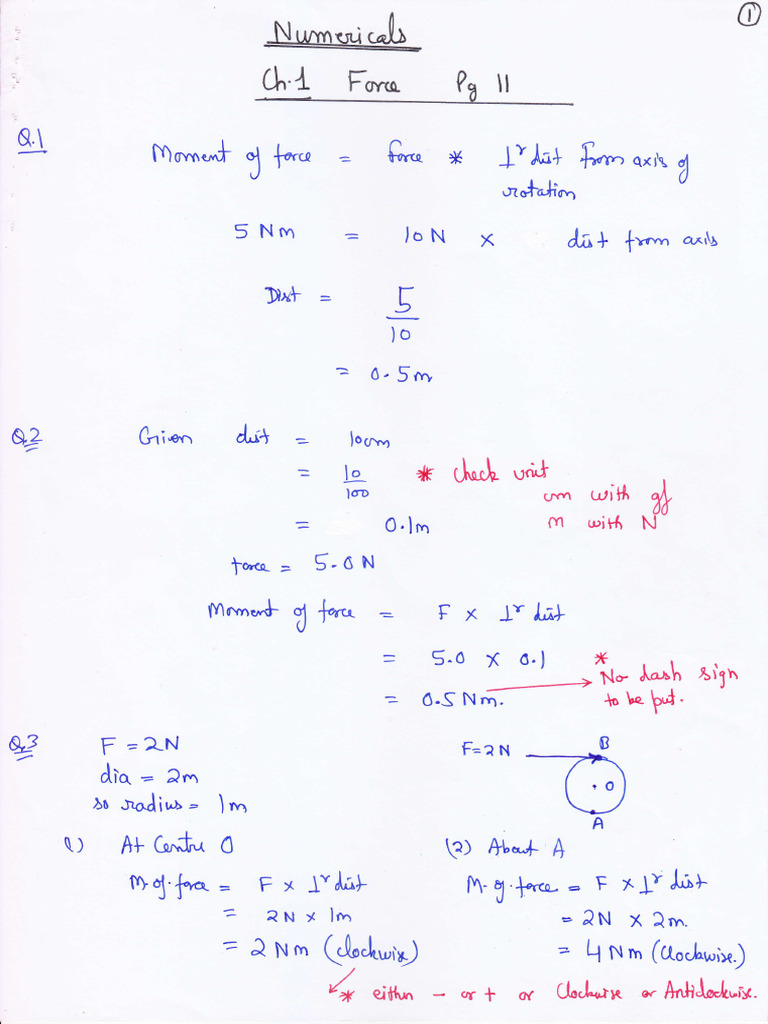 1
Numericals
Ch.1 Force Pg 11
Q.1
Moment of force = force * ⊥r dist from axis of
rotation
5 Nm = 10N × dist from axis
Dist = 5
10
= 0.5m
Q.2 Given dist = 10cm
= 10
100
* check unit
cm with gf
m with N
= 0.1m
force = 5.0N
Moment of force = F × ⊥r dist
= 5.0 × 0.1
= 0.5 Nm.
* No dash sign
to be put.
Q.3 F = 2N
dia = 2m
so radius = 1m
F=2N
B
O
A
(1) At Centre O
M.of.force = F × ⊥r dist
= 2N × 1m
= 2 Nm (clockwise)
(2) About A
M.of.force = F × ⊥r dist
= 2N × 2m.
= 4 Nm (Clockwise.)
* either - or + or Clockwise or Anticlockwise.